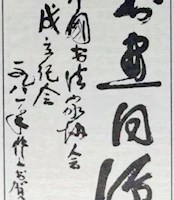 書画同源
中国书法家协会
成立纪念
一九八一年作